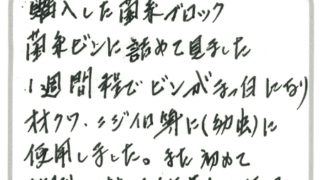 購入した菌糸ブロック
菌糸ビンに詰めて見ました
1週間程でビンがまっ白になり
オオクワ、ニジイロ等に(幼虫)に
使用しました。また初めて